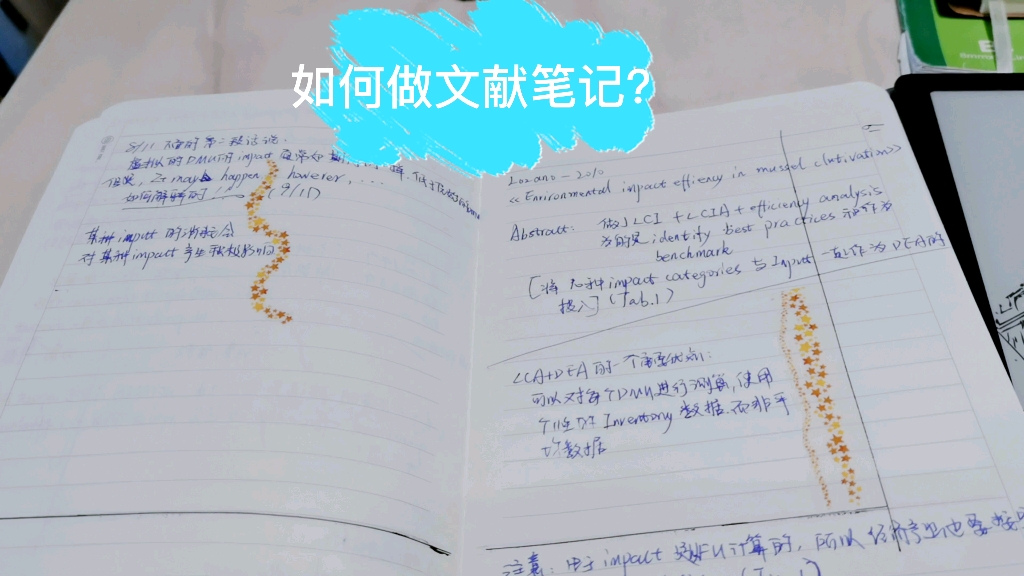 如何做文献笔记?
8/11 不懂的第二段话说.
虚拟的DMU的impact
但是, It may happen, however, ...
如何解释的!... (9/11)
某种impact的消耗会
对某种impact产生积极影响
Lozano - 2010
《Environmental impact efficiency in mussel cultivation》
Abstract: 做了LCI + LCIA + efficiency analysis
为的是 identify best practices 并作为
benchmark
[将 几种impact categories 与 Input 一起作为DEA的
投入] (Tab.1)
LCA+DEA的一个重要优点:
可以对每个DMU进行测算, 使用
个性的Inventory数据, 而非平
均数据
注意: 由于impact 是 FU计算的, 所以经济产出也要